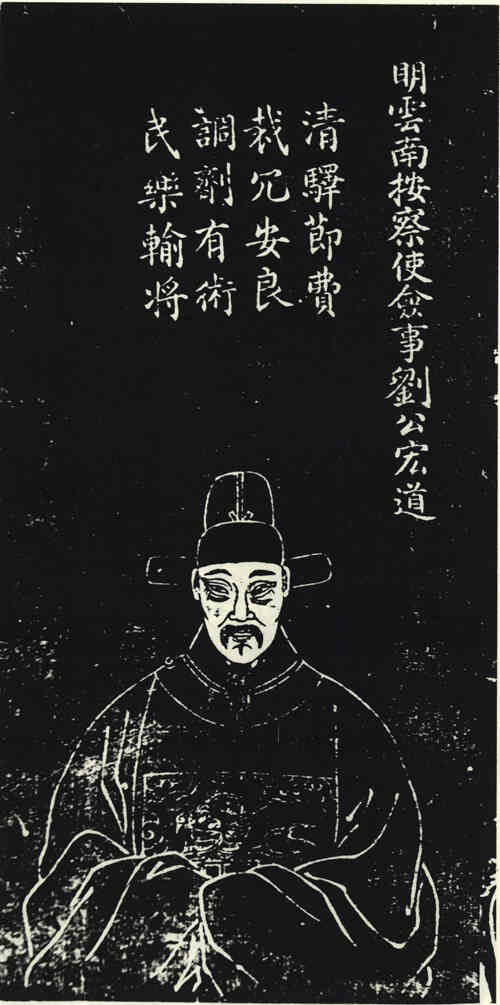 明雲南按察使僉事劉公宏道
清驛節費
裁冗安良
調劑有術
民樂輸将